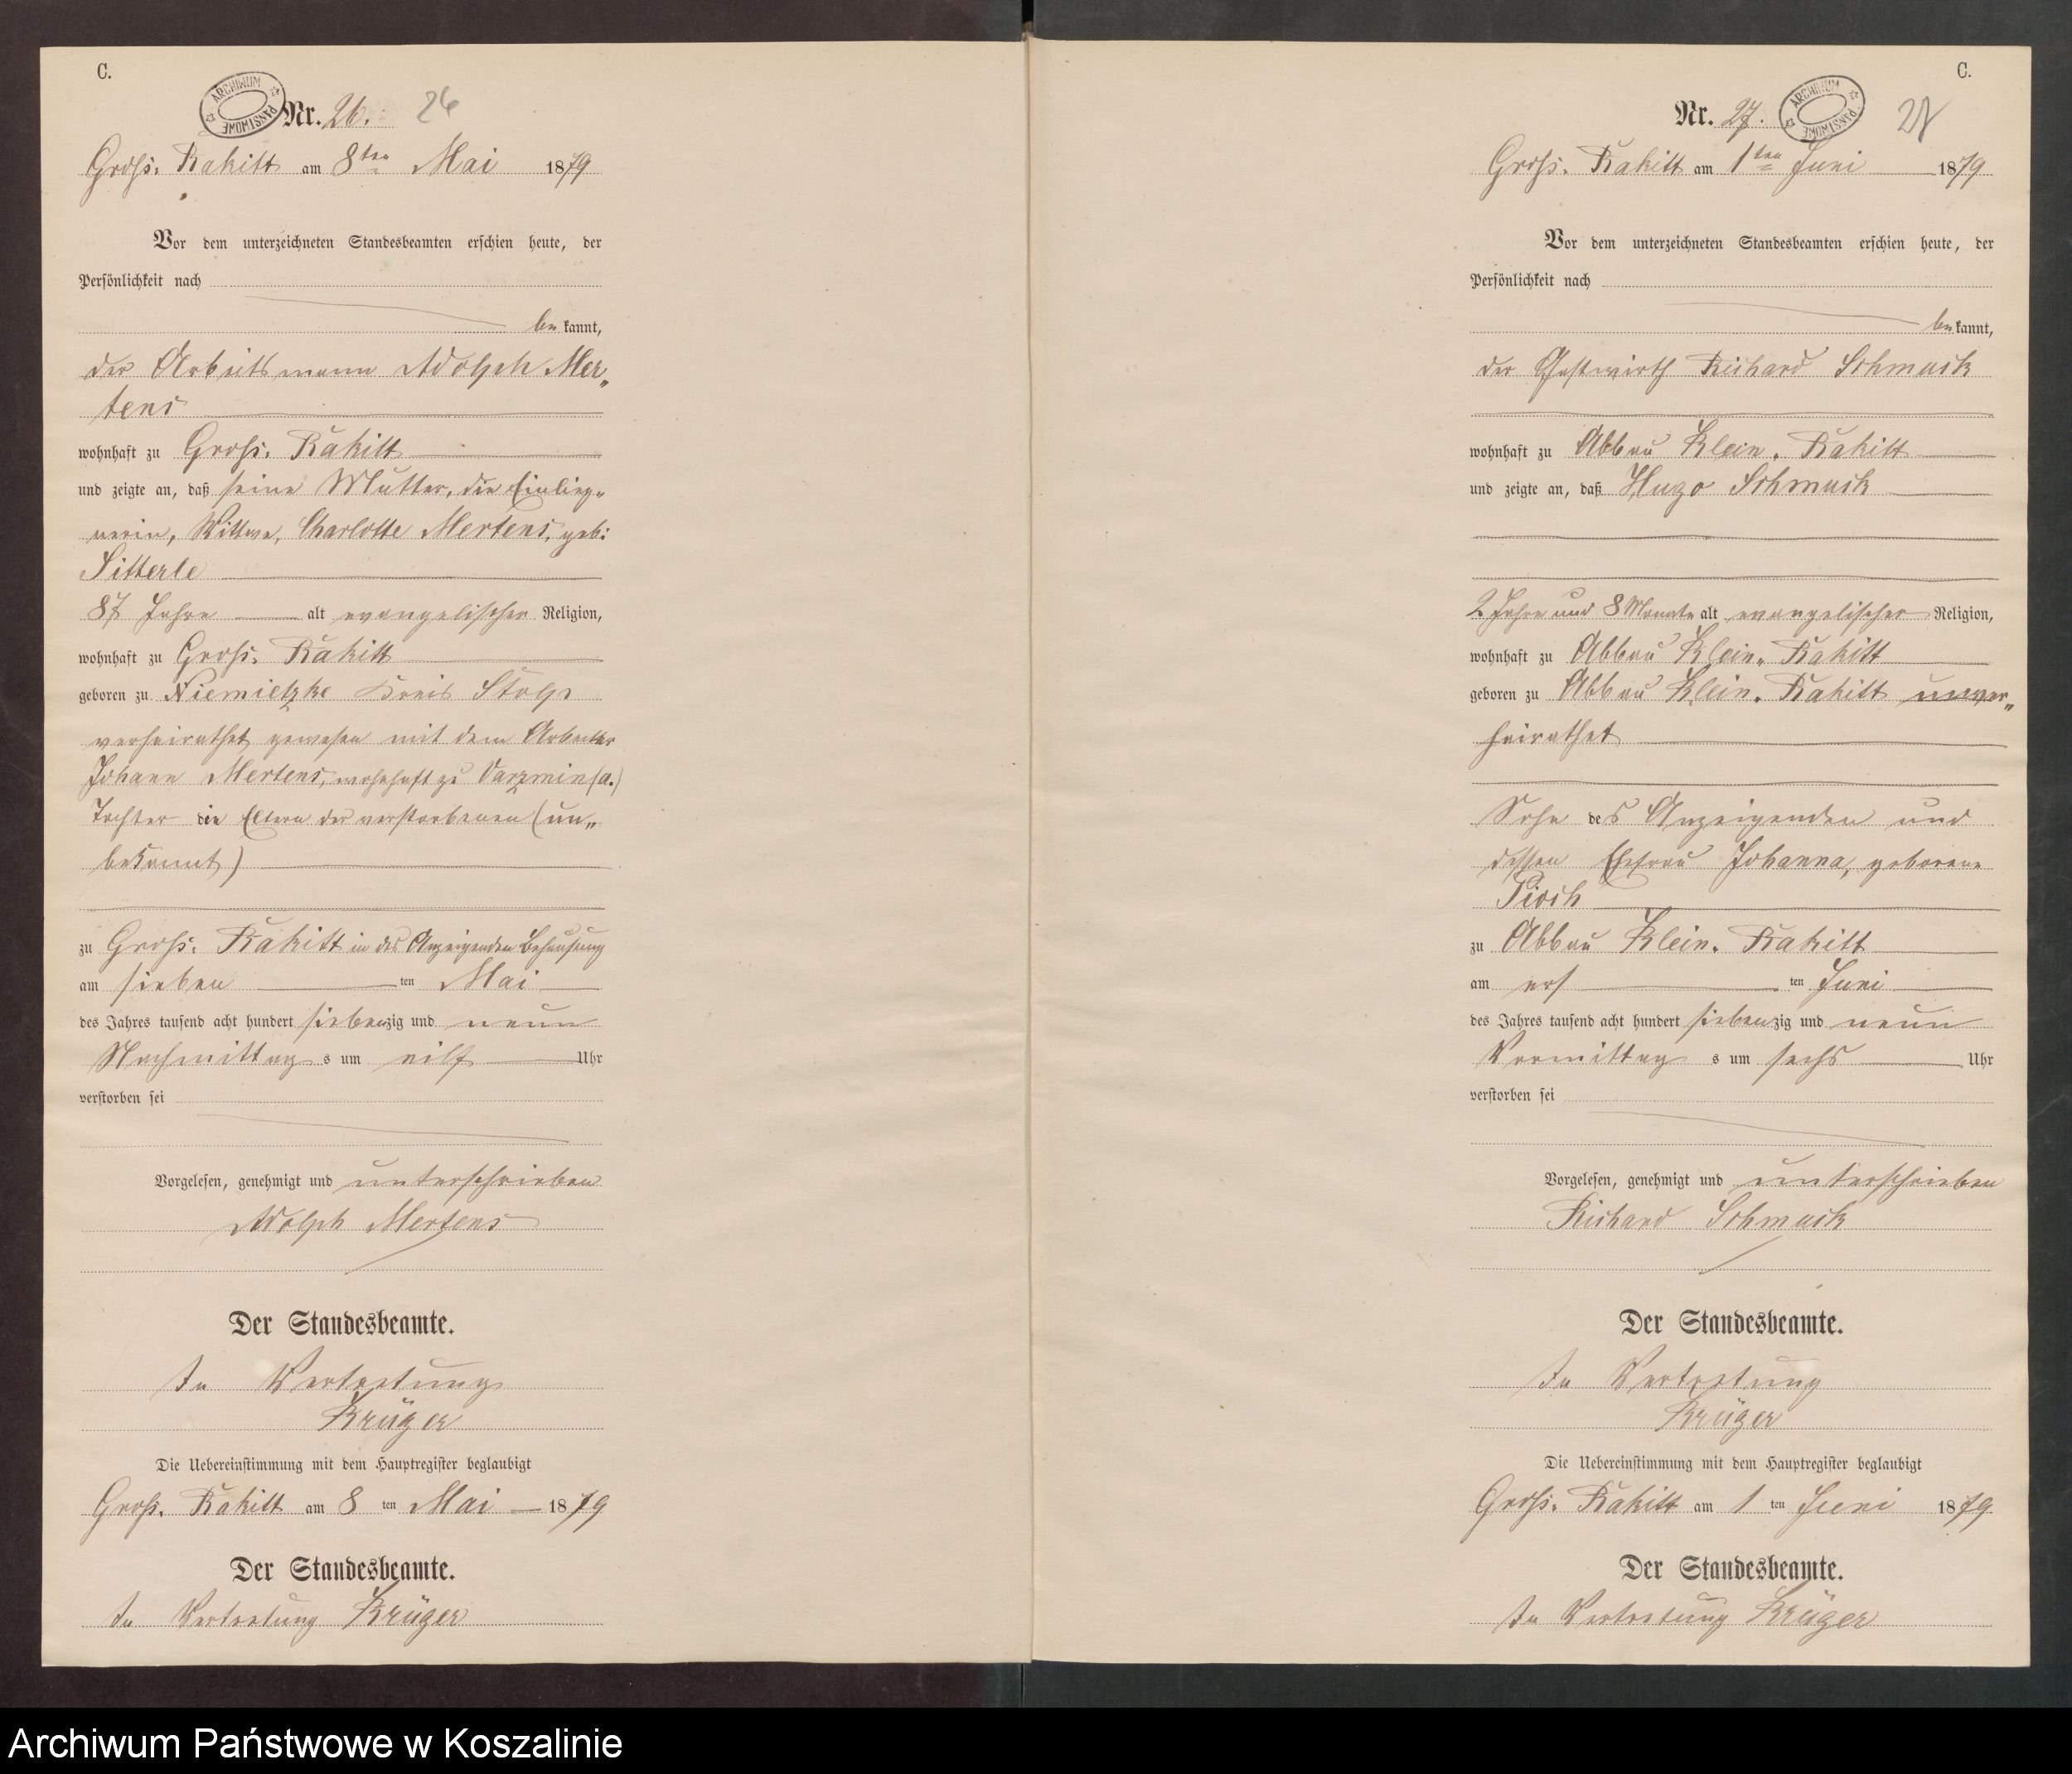 C.
ARCHIWUM PAŃSTWOWE
Nr. 26. 26
Groß. Rakitt am 8ten Mai 1879
Vor dem unterzeichneten Standesbeamten erschien heute, der
Persönlichkeit nach
bekannt,
der Arbeitsmann Adolph Mer„
tens
wohnhaft zu Groß. Rakitt
und zeigte an, daß seine Mutter, die Einlieg„
nerin, Wittwe, Charlotte Mertens, geb:
Sitterle
87 Jahre alt evangelischer Religion,
wohnhaft zu Groß. Rakitt
geboren zu Niemietzke Kreis Stolp
verheirathet gewesen mit dem Arbeiter
Johann Mertens, wohnhaft zu Varzmin (a.)
Tochter die Eltern der verstorbenen (un„
bekannt)
zu Groß. Rakitt in des Anzeigenden Behausung
am sieben ten Mai
des Jahres tausend acht hundert siebenzig und neun
Nachmittag s um eilf Uhr
verstorben sei
Vorgelesen, genehmigt und unterschrieben
Adolph Mertens
Der Standesbeamte.
In Vertretung
Krüger
Die Uebereinstimmung mit dem Hauptregister beglaubigt
Groß. Rakitt am 8 ten Mai 1879
Der Standesbeamte.
In Vertretung Krüger
C.
Nr. 27. 27
ARCHIWUM PAŃSTWOWE
Groß. Rakitt am 1ten Juni 1879
Vor dem unterzeichneten Standesbeamten erschien heute, der
Persönlichkeit nach
bekannt,
der Gastwirth Richard Schmuck
wohnhaft zu Abbau Klein. Rakitt
und zeigte an, daß Hugo Schmuck
2 Jahre und 8 Monate alt evangelischer Religion,
wohnhaft zu Abbau Klein. Rakitt
geboren zu Abbau Klein. Rakitt unver„
heirathet
Sohn des Anzeigenden und
dessen Ehefrau Johanna, geborene
Pioch
zu Abbau Klein. Rakitt
am ers ten Juni
des Jahres tausend acht hundert siebenzig und neun
Vormittag s um sechs Uhr
verstorben sei
Vorgelesen, genehmigt und unterschrieben
Richard Schmuck
Der Standesbeamte.
In Vertretung
Krüger
Die Uebereinstimmung mit dem Hauptregister beglaubigt
Groß. Rakitt am 1 ten Juni 1879
Der Standesbeamte.
In Vertretung Krüger
Archiwum Państwowe w Koszalinie